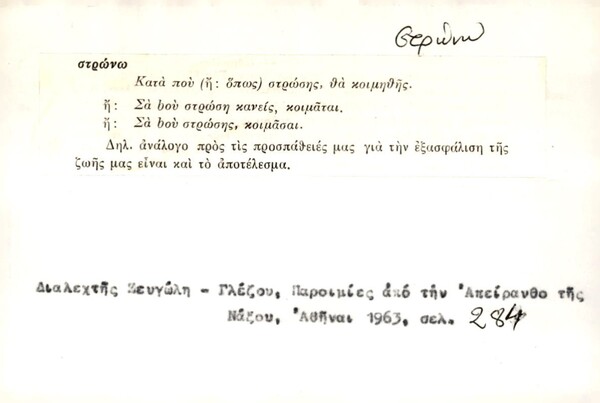 στρώνω
στρώνω
Κατὰ ποὺ (ἤ: ὅπως) στρώσῃς, θὰ κοιμηθῇς.
ἤ: Σὰ βοὺ στρώσῃ κανείς, κοιμᾶται.
ἤ: Σὰ βοὺ στρώσῃς, κοιμᾶσαι.
Δηλ. ἀνάλογο πρὸς τὶς προσπάθειές μας γιὰ τὴν ἐξασφάλιση τῆς
ζωῆς μας εἶναι καὶ τὸ ἀποτέλεσμα.
Διαλεχτῆς Ζευγώλη - Γλέζου, Παροιμίες ἀπό τήν Ἀπείρανθο τῆς
Νάξου, Ἀθῆναι 1963, σελ. 284